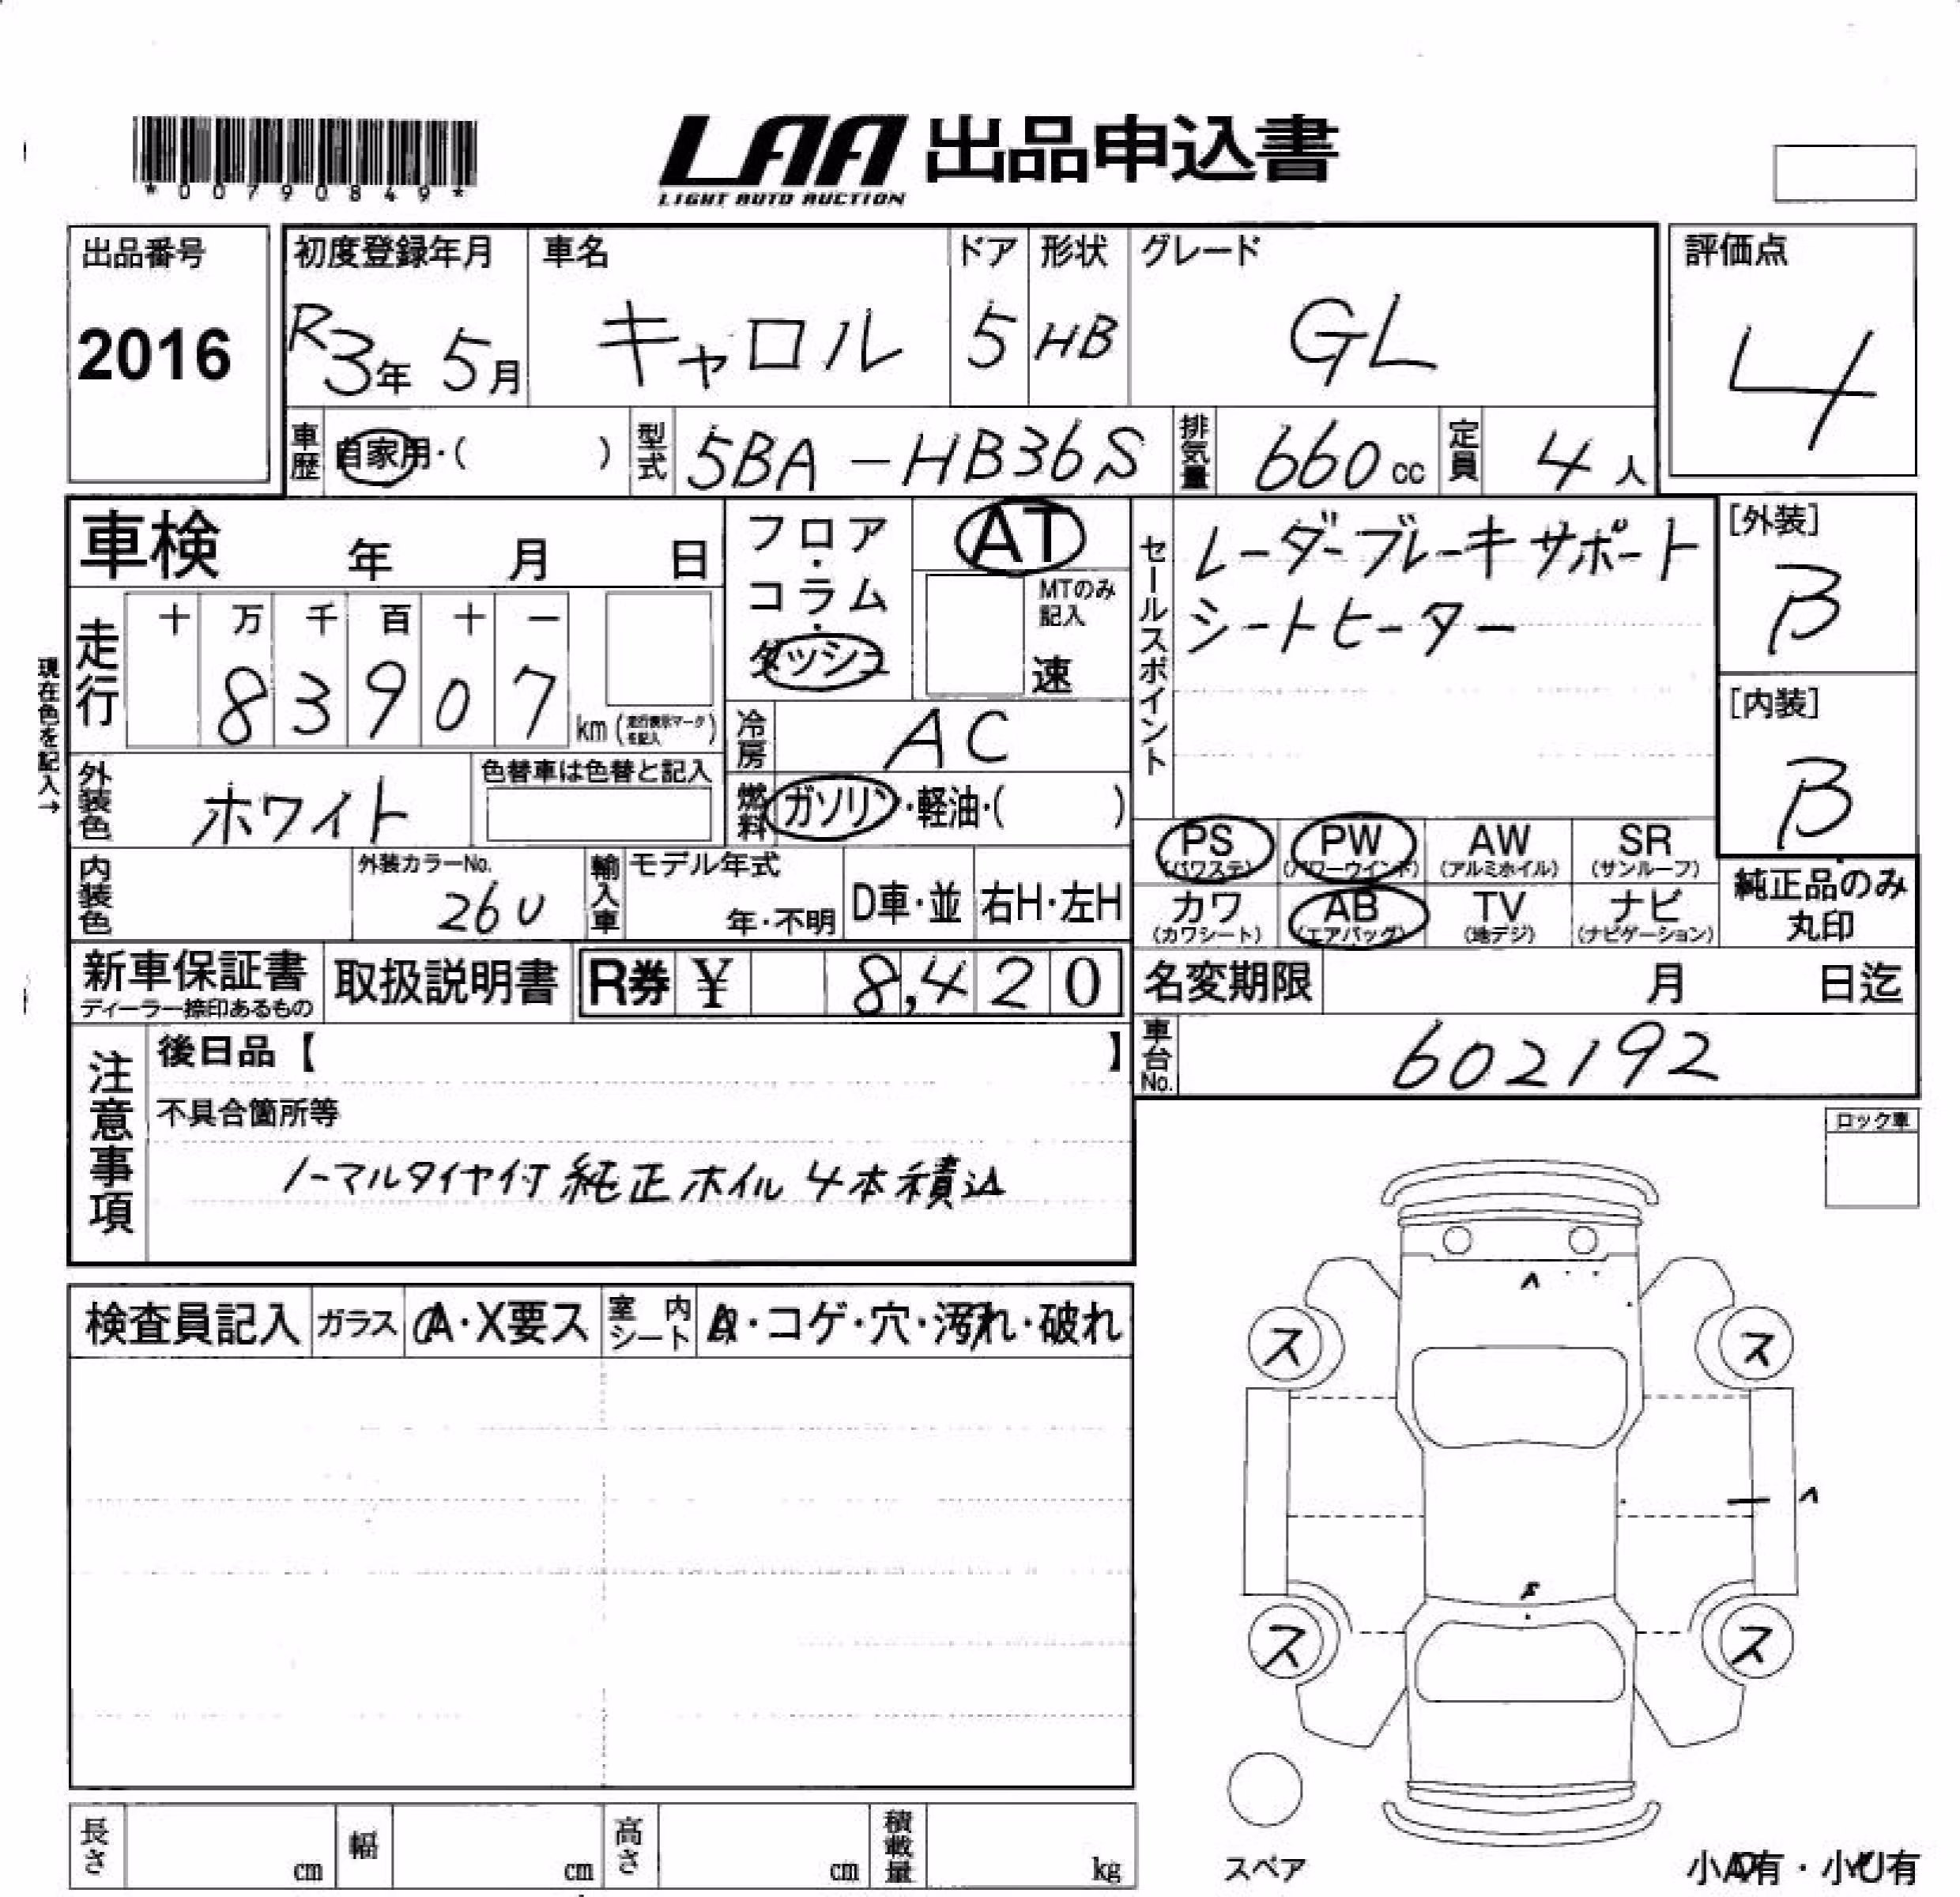 *00790849*
LAA 出品申込書
LIGHT AUTO AUCTION
出品番号
2016
初度登録年月
R3年 5月
車名
キャロル
ドア
5
形状
HB
グレード
GL
評価点
4
車歴 自家用・( )
型式 5BA-HB36S
排気量 660cc
定員 4人
車検 年 月 日
フロア・コラム・ダッシュ
AT
MTのみ記入
速
セールスポイント
レーダーブレーキサポート
シートヒーター
[外装]
B
[内装]
B
現在色を記入→
走行
十 万 千 百 十 一
83907 km (走行表示マークを記入)
冷房 AC
外装色 ホワイト
色替車は色替と記入
燃料 ガソリン・軽油・( )
PS (パワステ)
PW (パワーウインド)
AW (アルミホイル)
SR (サンルーフ)
カワ (カワシート)
AB (エアバッグ)
TV (地デジ)
ナビ (ナビゲーション)
純正品のみ丸印
内装色
外装カラーNo.
26U
輸入車
モデル年式
年・不明
D車・並
右H・左H
新車保証書
ディーラー捺印あるもの
取扱説明書
R券 ¥ 8,420
名変期限 月 日迄
車台No. 602192
注意事項
後日品【 】
不具合箇所等
ノーマルタイヤ付 純正ホイル 4本積込
ロック車
検査員記入
ガラス A・X要ス
室内シート
・コゲ・穴・汚れ・破れ
ス
ス
^
^
ス
ス
スペア
小A有・小U有
長さ cm
幅 cm
高さ cm
積載量 kg